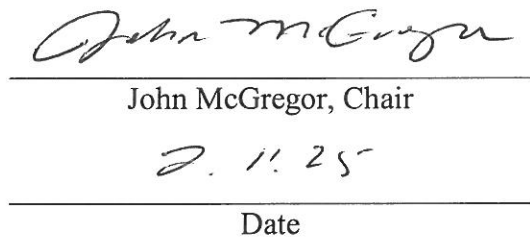 John McGregor
John McGregor, Chair
2.11.25
Date